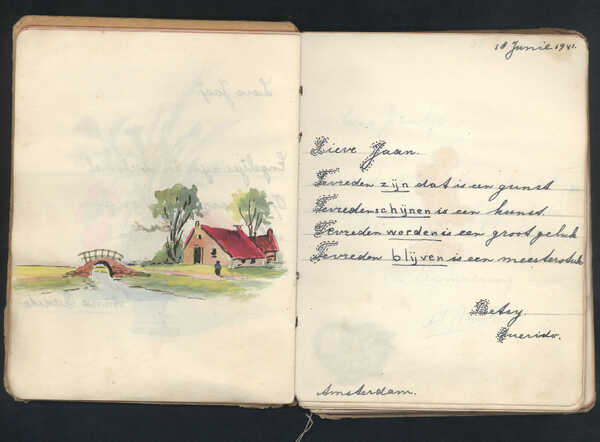 18 Junie 1941.
Lieve Jaan.
Tevreden zijn dat is een gunst
Tevreden schijnen is een kunst
Tevreden worden is een groot geluk
Tevreden blijven is een meesterstuk
Betsy
Querido.
Amsterdam.